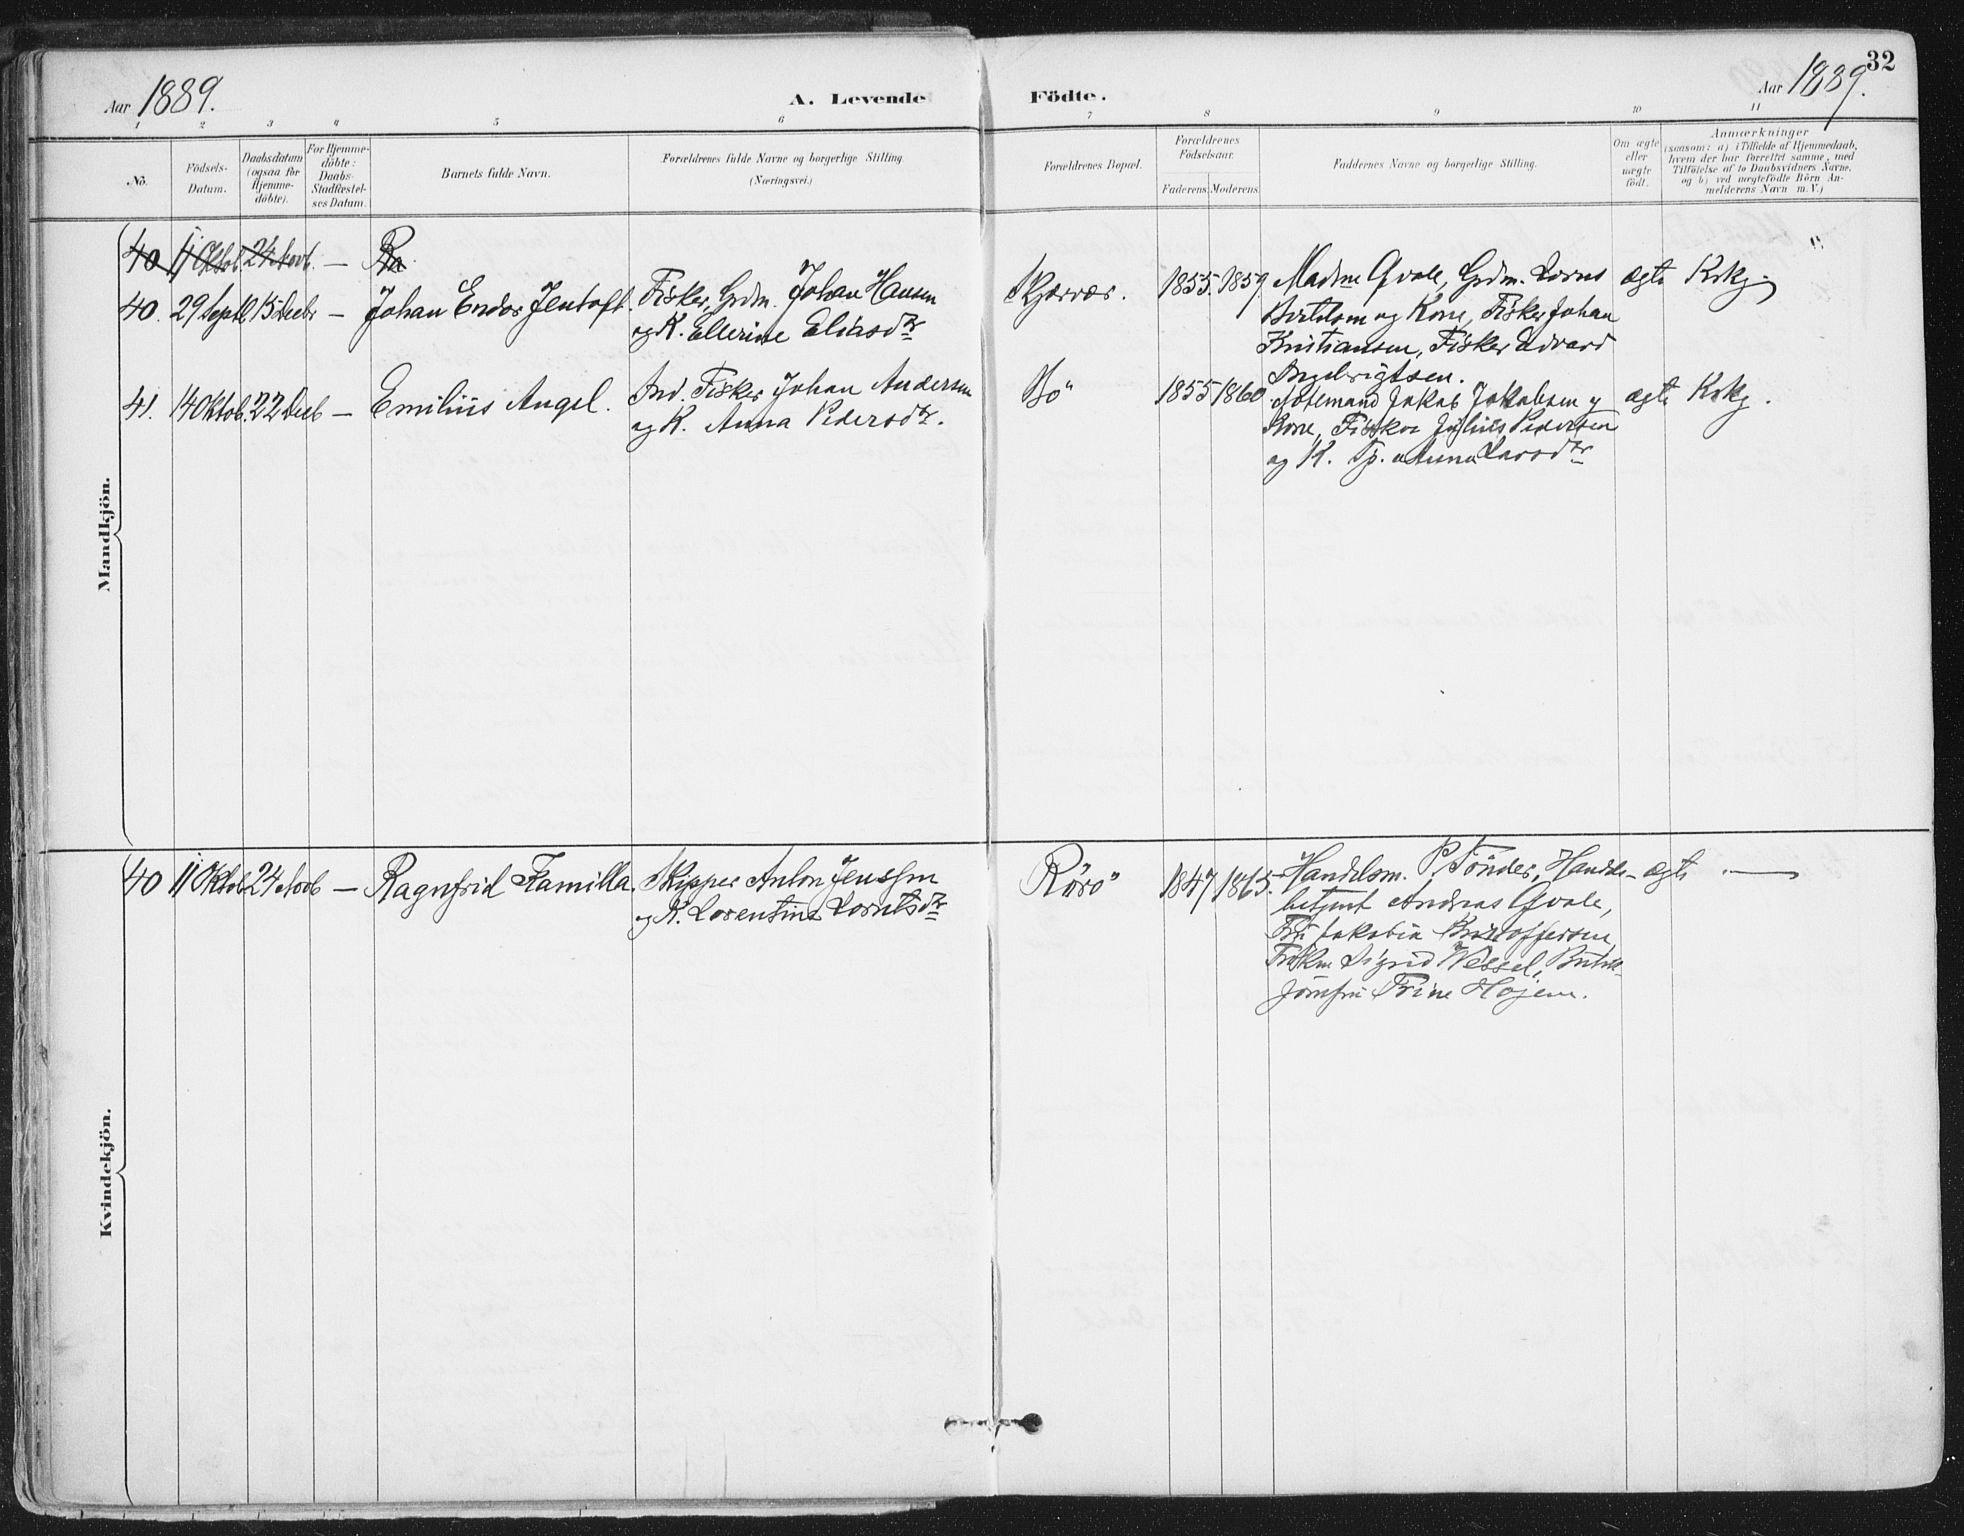 Aar 1889.
A. Levende Födte.
32
Aar 1889.
1 2 3 4 5 6 7 8 9 10 11
No.
Födsels-Datum.
Daabsdatum (ogsaa for Hjemme-döbte).
For Hjemme-döbte: Daabs-Stadfæstel-ses Datum.
Barnets fulde Navn.
Forældrenes fulde Navne og borgerlige Stilling. (Næringsvei.)
Forældrenes Bopæl.
Forældrenes Födselsaar.
Faderens. Moderens.
Faddernes Navne og borgerlige Stilling.
Om ægte eller uægte födt.
Anmærkninger
(saasom: a) i Tilfælde af Hjemmedaab, hvem der har forrettet samme, med Tilföielse af to Daabsvidners Navne, og b) ved uægtefödte Börn An-melderens Navn m. V.)
Mandkjön.
40 11 Oktob. 24 Novb. —
40. 29 Septb. 15 Decbr — Johan Endor Jentoft. Fisker, Grdm. Johan Hansen
og K. Ellerine Eliasdtr
Skjærvær. 1855. 1859. Madme Qvale, Grdm. Lorns
Bertelsen og Kone, Fisker Johan
Kristiansen, Fisker Edvard
Ingebrigtsen.
ægte Krkj
41. 14 Oktob. 22 Decb — Emilius Angel. Ind. Fisker Johan Andersen
og K. Anna Pedersdtr.
Bö 1855 1860 Notemand Jakob Jakobsen og
Kone, Fisker Julius Pedersen
og K. Pg. Anna Larsdtr
ægte Krkj.
Kvindekjön.
40 11 Oktob 24 Novb — Ragnfrid Kamilla. Skipper Anton Jenssen
og K. Lorentine Lorntsdtr
Rörö 1847 1865. Handelsm. P. Tönder, Handels-
betjent Andreas Qvale,
Fru Jakobia Kristoffersen,
Fröken Sigrid Wessel, Butik-
jomfru Trine Højem.
ægte —